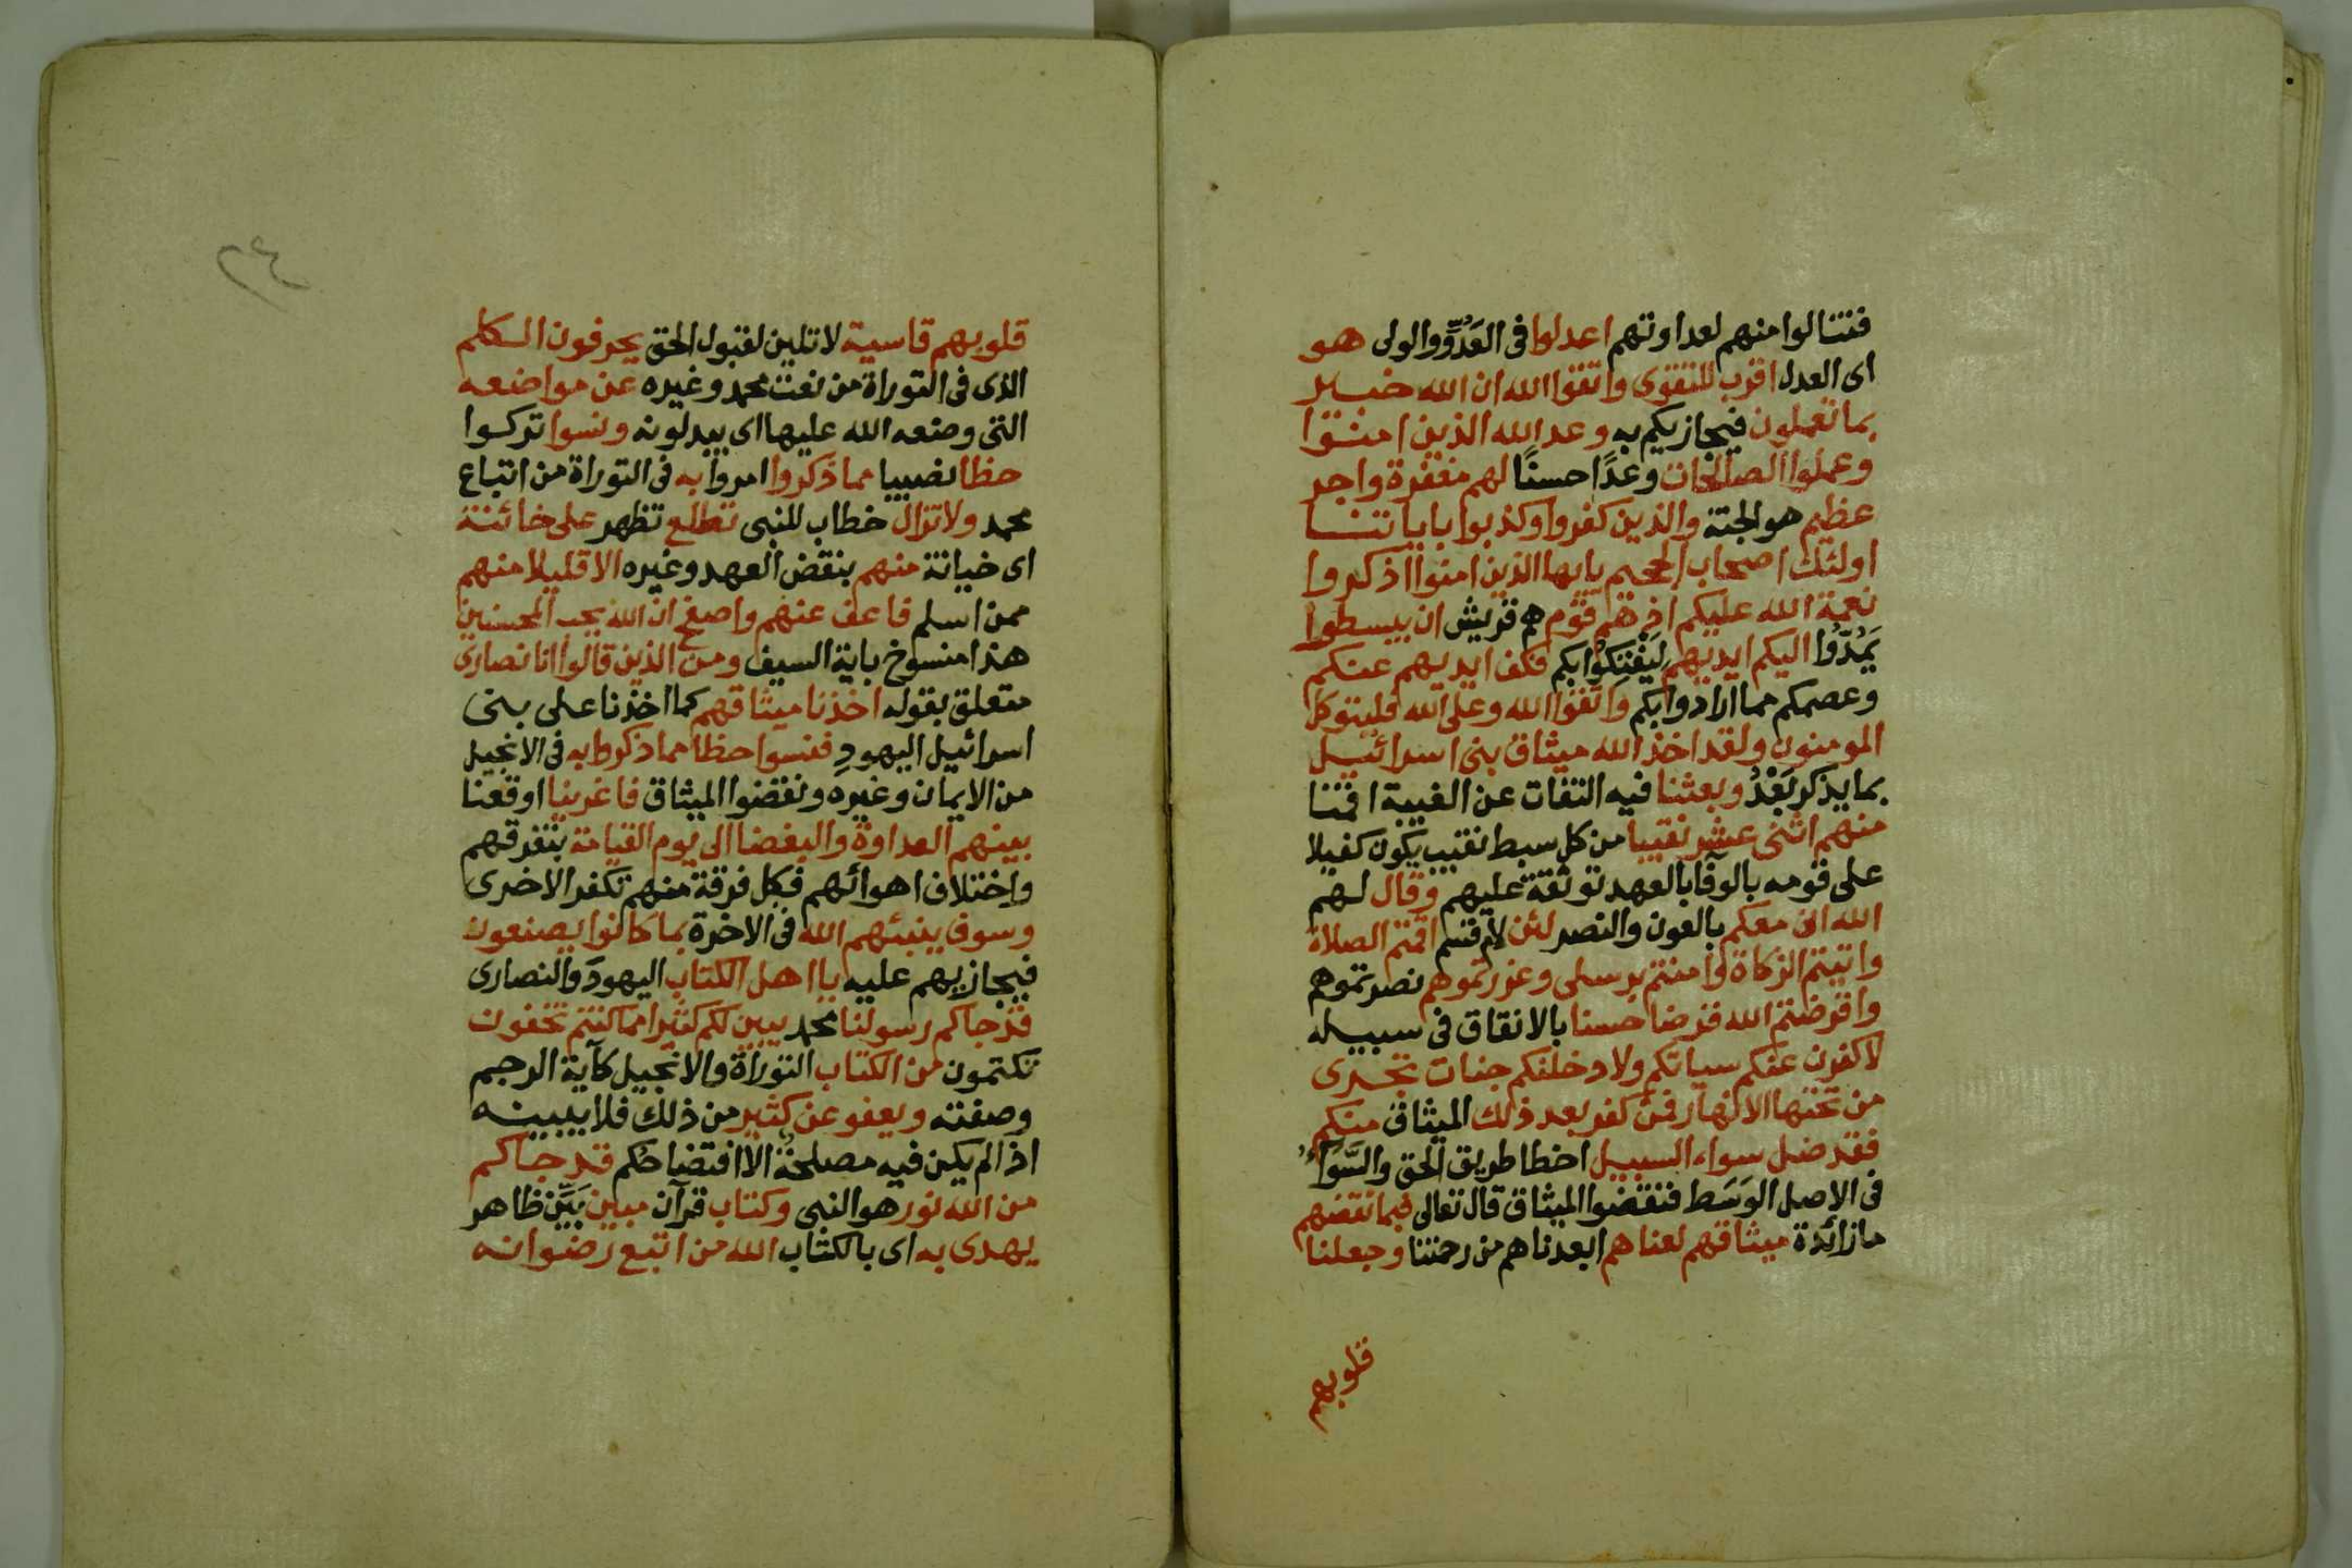 فتنالوا منهم لعداوتهم اعدلوا فى العَدُوِّ والولى هو
اى العدل اقرب للتقوى واتقوا الله ان الله خبير
بما تعملون فيجازيكم به وعد الله الذين امنوا
وعملوا الصالحات وعدًا حسنًا لهم مغفرة واجر
عظيم هو الجنة والذين كفروا وكذبوا باياتنا
اولئك اصحاب الجحيم يايها الذين امنوا اذكروا
نعمة الله عليكم اذ هم قوم هم قريش ان يبسطوا
يَمُدُّوا اليكم ايديهم لِيَفْتِكُوْا بكم فكف ايديهم عنكم
وعصمكم مما ارادوا بكم واتقوا الله وعلى الله فليتوكل
المومنون ولقد اخذ الله ميثاق بنى اسرائيل
بما يذكر بَعْدُ وبعثنا فيه التفات عن الغيبة اقمنا
منهم اثنى عشر نقيبا من كل سبط نقيب يكون كفيلا
على قومه بالوفا بالعهد توثقة عليهم وقال لهم
الله انى معكم بالعون والنصر لئن لام قسم اقمتم الصلاة
واتيتم الزكاة وامنتم برسلى وعزرتموهم نصرتموهم
واقرضتم الله قرضا حسنا بالانفاق فى سبيله
لاكفرن عنكم سياتكم ولادخلنكم جنات تجرى
من تحتها الانهار فمن كفر بعد ذلك الميثاق منكم
فقد ضل سواء السبيل اخطا طريق الحق والسَّوَاءُ
فى الاصل الوَسَط فنقضوا الميثاق قال تعالى فبما نقضهم
ما زائدة ميثاقهم لعناهم ابعدناهم من رحمتنا وجعلنا
قلوبهم
٢٤
قلوبهم قاسية لا تلين لقبول الحق يحرفون الكلم
الذى فى التوراة من نعت محمد وغيره عن مواضعه
التى وضعه الله عليها اى يبدلونه ونسوا تركوا
حظا نصيبا مما ذكروا امروا به فى التوراة من اتباع
محمد ولا تزال خطاب للنبى تطلع تظهر على خائنة
اى خيانة منهم بنقض العهد وغيره الا قليلا منهم
ممن اسلم فاعف عنهم واصفح ان الله يحب المحسنين
هذا منسوخ باية السيف ومن الذين قالوا انا نصارى
متعلق بقوله اخذنا ميثاقهم كما اخذنا على بنى
اسرائيل اليهودِ فنسوا حظا مما ذكروا به فى الانجيل
من الايمان وغيره ونقضوا الميثاق فاغرينا اوقعنا
بينهم العداوة والبغضا الى يوم القيامة بتفرقهم
واختلاف اهوائهم فكل فرقة منهم تكفر الاخرى
وسوف ينبئهم الله فى الاخرة بما كانوا يصنعون
فيجازيهم عليه يا اهل الكتاب اليهودَ والنصارى
قد جاكم رسولنا محمد يبين لكم كثيرا مما كنتم تخفون
تكتمون من الكتاب التوراة والانجيل كآية الرجم
وصفته ويعفو عن كثير من ذلك فلا يبينه
اذا لم يكن فيه مصلحةٌ الا افتضاحُكم قد جاكم
من الله نور هو النبى وكتاب قرآن مبين بَيِّن ظاهر
يهدى به اى بالكتاب الله من اتبع رضوانه